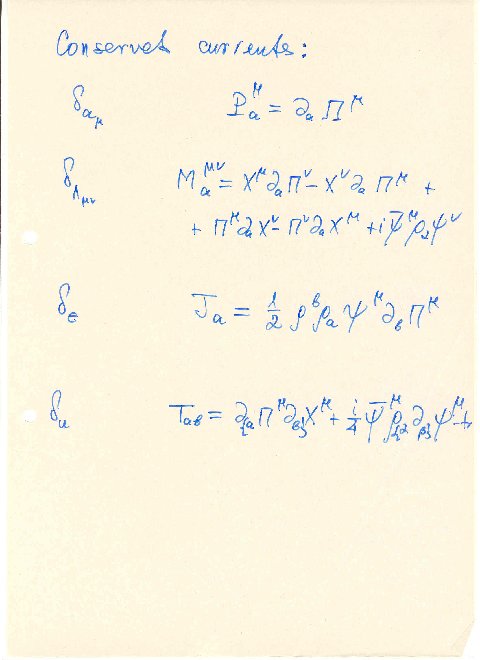 Conservet currents:
δ_{a_μ} P_a^μ = ∂_a Π^μ
δ_{Λ_{μν}} M_a^{μν} = X^μ ∂_a Π^ν - X^ν ∂_a Π^μ +
+ Π^μ ∂_a X^ν - Π^ν ∂_a X^μ + i ψ̄^μ ρ_a ψ^ν
δ_ε J_a = 1/2 ρ^b ρ_a ψ^μ ∂_b Π^μ
δ_u T_{ab} = ∂_{{a} Π^μ ∂_{b}} X^μ + i/4 ψ̄^μ ρ_{{a} ∂_{b}} ψ^μ - tr